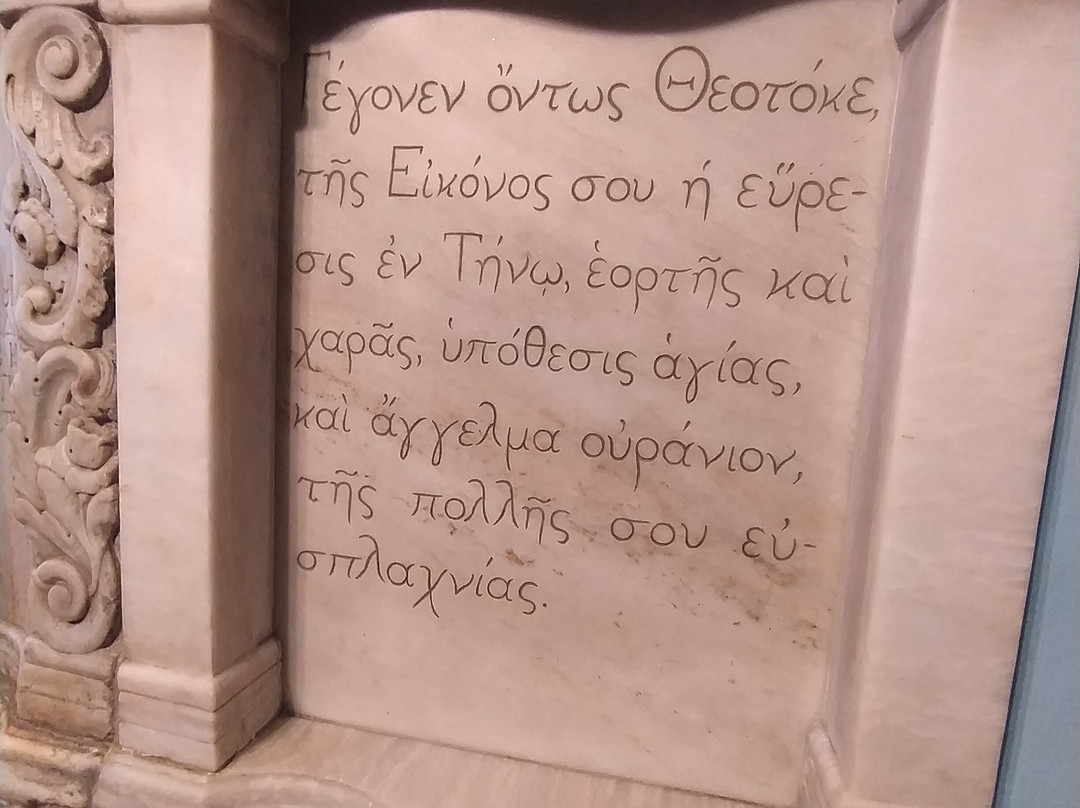 Γέγονεν ὄντως Θεοτόκε,
τῆς Εἰκόνος σου ἡ εὕρε-
σις ἐν Τήνῳ, ἑορτῆς καὶ
χαρᾶς, ὑπόθεσις ἁγίας,
καὶ ἄγγελμα οὐράνιον,
τῆς πολλῆς σου εὐ-
σπλαχνίας.